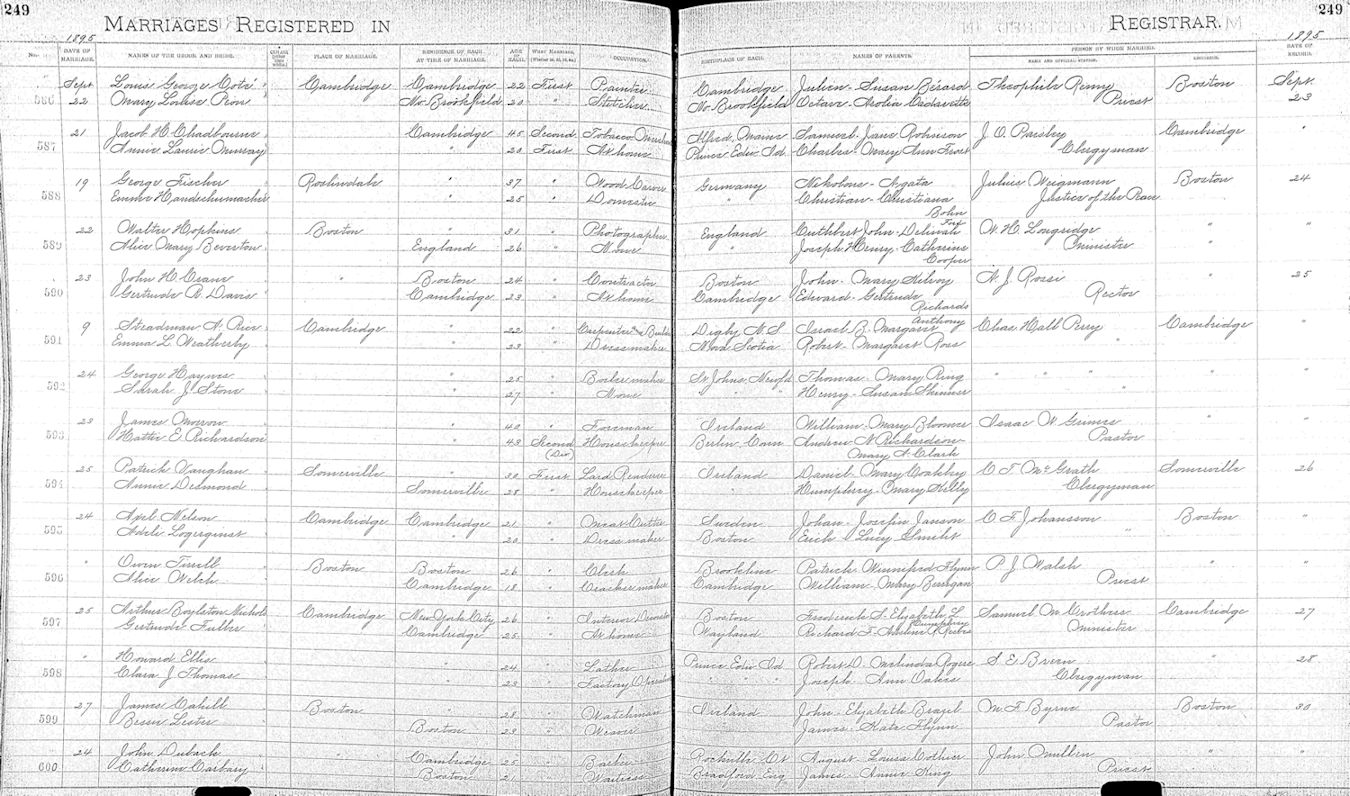 249 249
MARRIAGES REGISTERED IN REGISTRAR.
1895 1895
No. DATE OF MARRIAGE. NAMES OF THE GROOM AND BRIDE. PLACE OF MARRIAGE. RESIDENCE OF EACH AT TIME OF MARRIAGE. AGE OF EACH. WHAT MARRIAGE, (Whether 1st, 2d, 3d, &c.) OCCUPATION. BIRTHPLACE OF EACH. NAMES OF PARENTS. PERSON BY WHOM MARRIED. NAME AND OFFICIAL STATION. RESIDENCE. DATE OF RECORD.
Sept Louis George Coté Cambridge Cambridge 22 First Painter Cambridge Julien - Susan Bérard Theophile Remy Boston Sept
586 22 Mary Louisa Pion No. Brookfield 20 " Stitcher No. Brookfield Octave - Priest 23
21 Jacob H. Chadbourne Cambridge 45 Second Tobacco Alfred, Maine Samuel - Jane Johnson J. O. Cambridge "
587 Annie Laurie Murray " 20 First At home Prince Edw. Isd Charles - Mary Ann Frost Clergyman
19 George Fischer Roslindale " 37 " Wood Carver Germany Nikolaus - Agata Julius Wiegmann Boston 24
588 Emma Handschumacher " 25 " Domestic " Christian - Christiana Bohn Justice of the Peace
22 Walter Hopkins Boston " 31 " Photographer England Cuthbert John - W. H. Longridge " "
589 Alice Mary Beverton England 26 " None " Joseph Henry - Catherine Cooper Minister "
23 John H. Crane " Boston 24 " Contractor Boston John - Mary Kilroy N. J. Rossi " 25
590 Gertrude A. Davis Cambridge 23 " At home Cambridge Edward - Gertrude Richards Rector
9 Steadman N. Cambridge " 22 " Carpenter & Builder Digby N.S. Israel B. - Margaret Anthony Chas. Hall Perry Cambridge "
591 Emma L. Weatherby " 23 " Dressmaker Nova Scotia Robert - Margaret Ross "
24 George Haynes " " 25 " Boilermaker St. Johns, Newfd Thomas - Mary Ring " " " " " "
592 Sarah J. Stone " 27 " None " " " Henry - Susan Skinner "
23 James Morron " " 40 " Foreman Ireland William - Mary Bloomer Isaac W. Grimes " "
593 Hattie E. Richardson " 43 Second (Div) Housekeeper Berlin, Andrew N Richardson Mary A. Clark Pastor
25 Patrick Vaughan Somerville " 30 First Lard Renderer Ireland Daniel - Mary Coakley C T McGrath Somerville 26
594 Annie Desmond Somerville 28 " Housekeeper " Humphrey - Mary Kelly Clergyman
24 Axel Nelson Cambridge Cambridge 21 " Meat Cutter Sweden Johan - Josefin Janson C F Johansson Boston "
595 Adele " 20 " Dressmaker Boston Erick - Lucy Smelit "
" Owen Tirrell Boston Boston 26 " Clerk Brookline Patrick - Winnifred Flynn P J Walsh " "
596 Alice Welch Cambridge 18 " Cracker maker Cambridge William - Mary Berrigan Priest
25 Arthur Boylston Nichols Cambridge New York City 26 " Interior Decorator Boston Frederick S - Elizabeth L. Humphrey Samuel M. Crothers Cambridge 27
597 Gertrude Fuller Cambridge 25 " At home Wayland Richard F - Adeline R Reeves Minister
" Howard Ellis " " 24 " Lather Prince Edw. Isd Robert D. - Melinda Rogers S E Breen " 28
598 Clara J Thomas " 23 " Factory Operative " " " Joseph - Ann Oakes Clergyman
27 James Cahill Boston " 28 " Watchman Ireland John - Elizabeth Brazel M. F Byrne Boston 30
599 Bessie Lester Boston 23 " Weaver " James - Kate Flynn Pastor
24 John Duback " Cambridge 25 " Barber Rockville Ct August - Louisa John Mullen " "
600 Catherine Carbary Boston 21 " Waitress Bradford Eng James - Annie King Priest